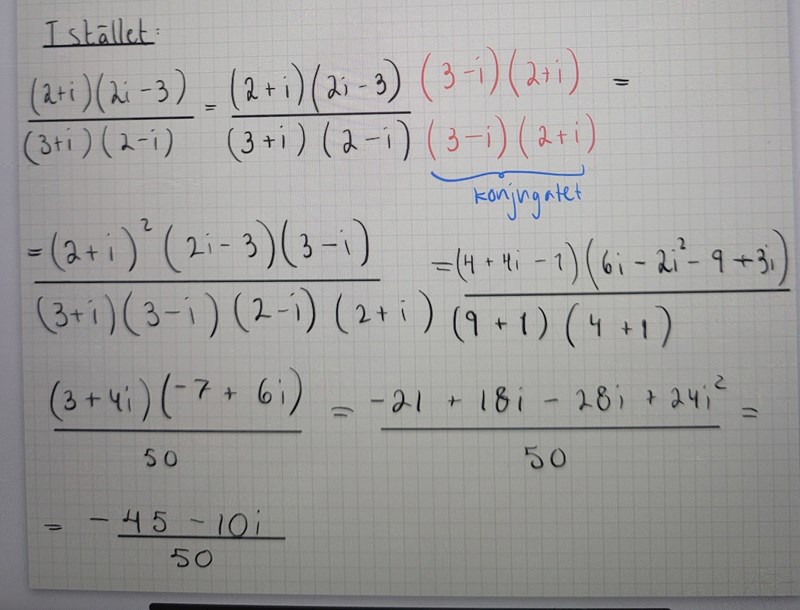 Istället:
(2+i)(2i-3)/(3+i)(2-i) = (2+i)(2i-3)(3-i)(2+i)/(3+i)(2-i)(3-i)(2+i) =
konjugatet
=(2+i)²(2i-3)(3-i)/(3+i)(3-i)(2-i)(2+i) =(4+4i-1)(6i-2i²-9+3i)/(9+1)(4+1)
(3+4i)(-7+6i)/50 = -21+18i-28i+24i²/50 =
= -45-10i/50